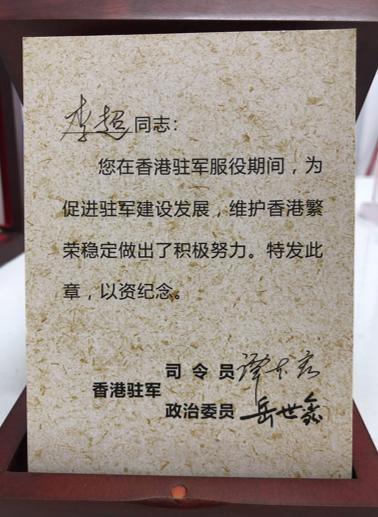 李超同志：
您在香港驻军服役期间，为
促进驻军建设发展，维护香港繁
荣稳定做出了积极努力。特发此
章，以资纪念。
香港驻军
司令员 谭本宏
政治委员 岳世鑫